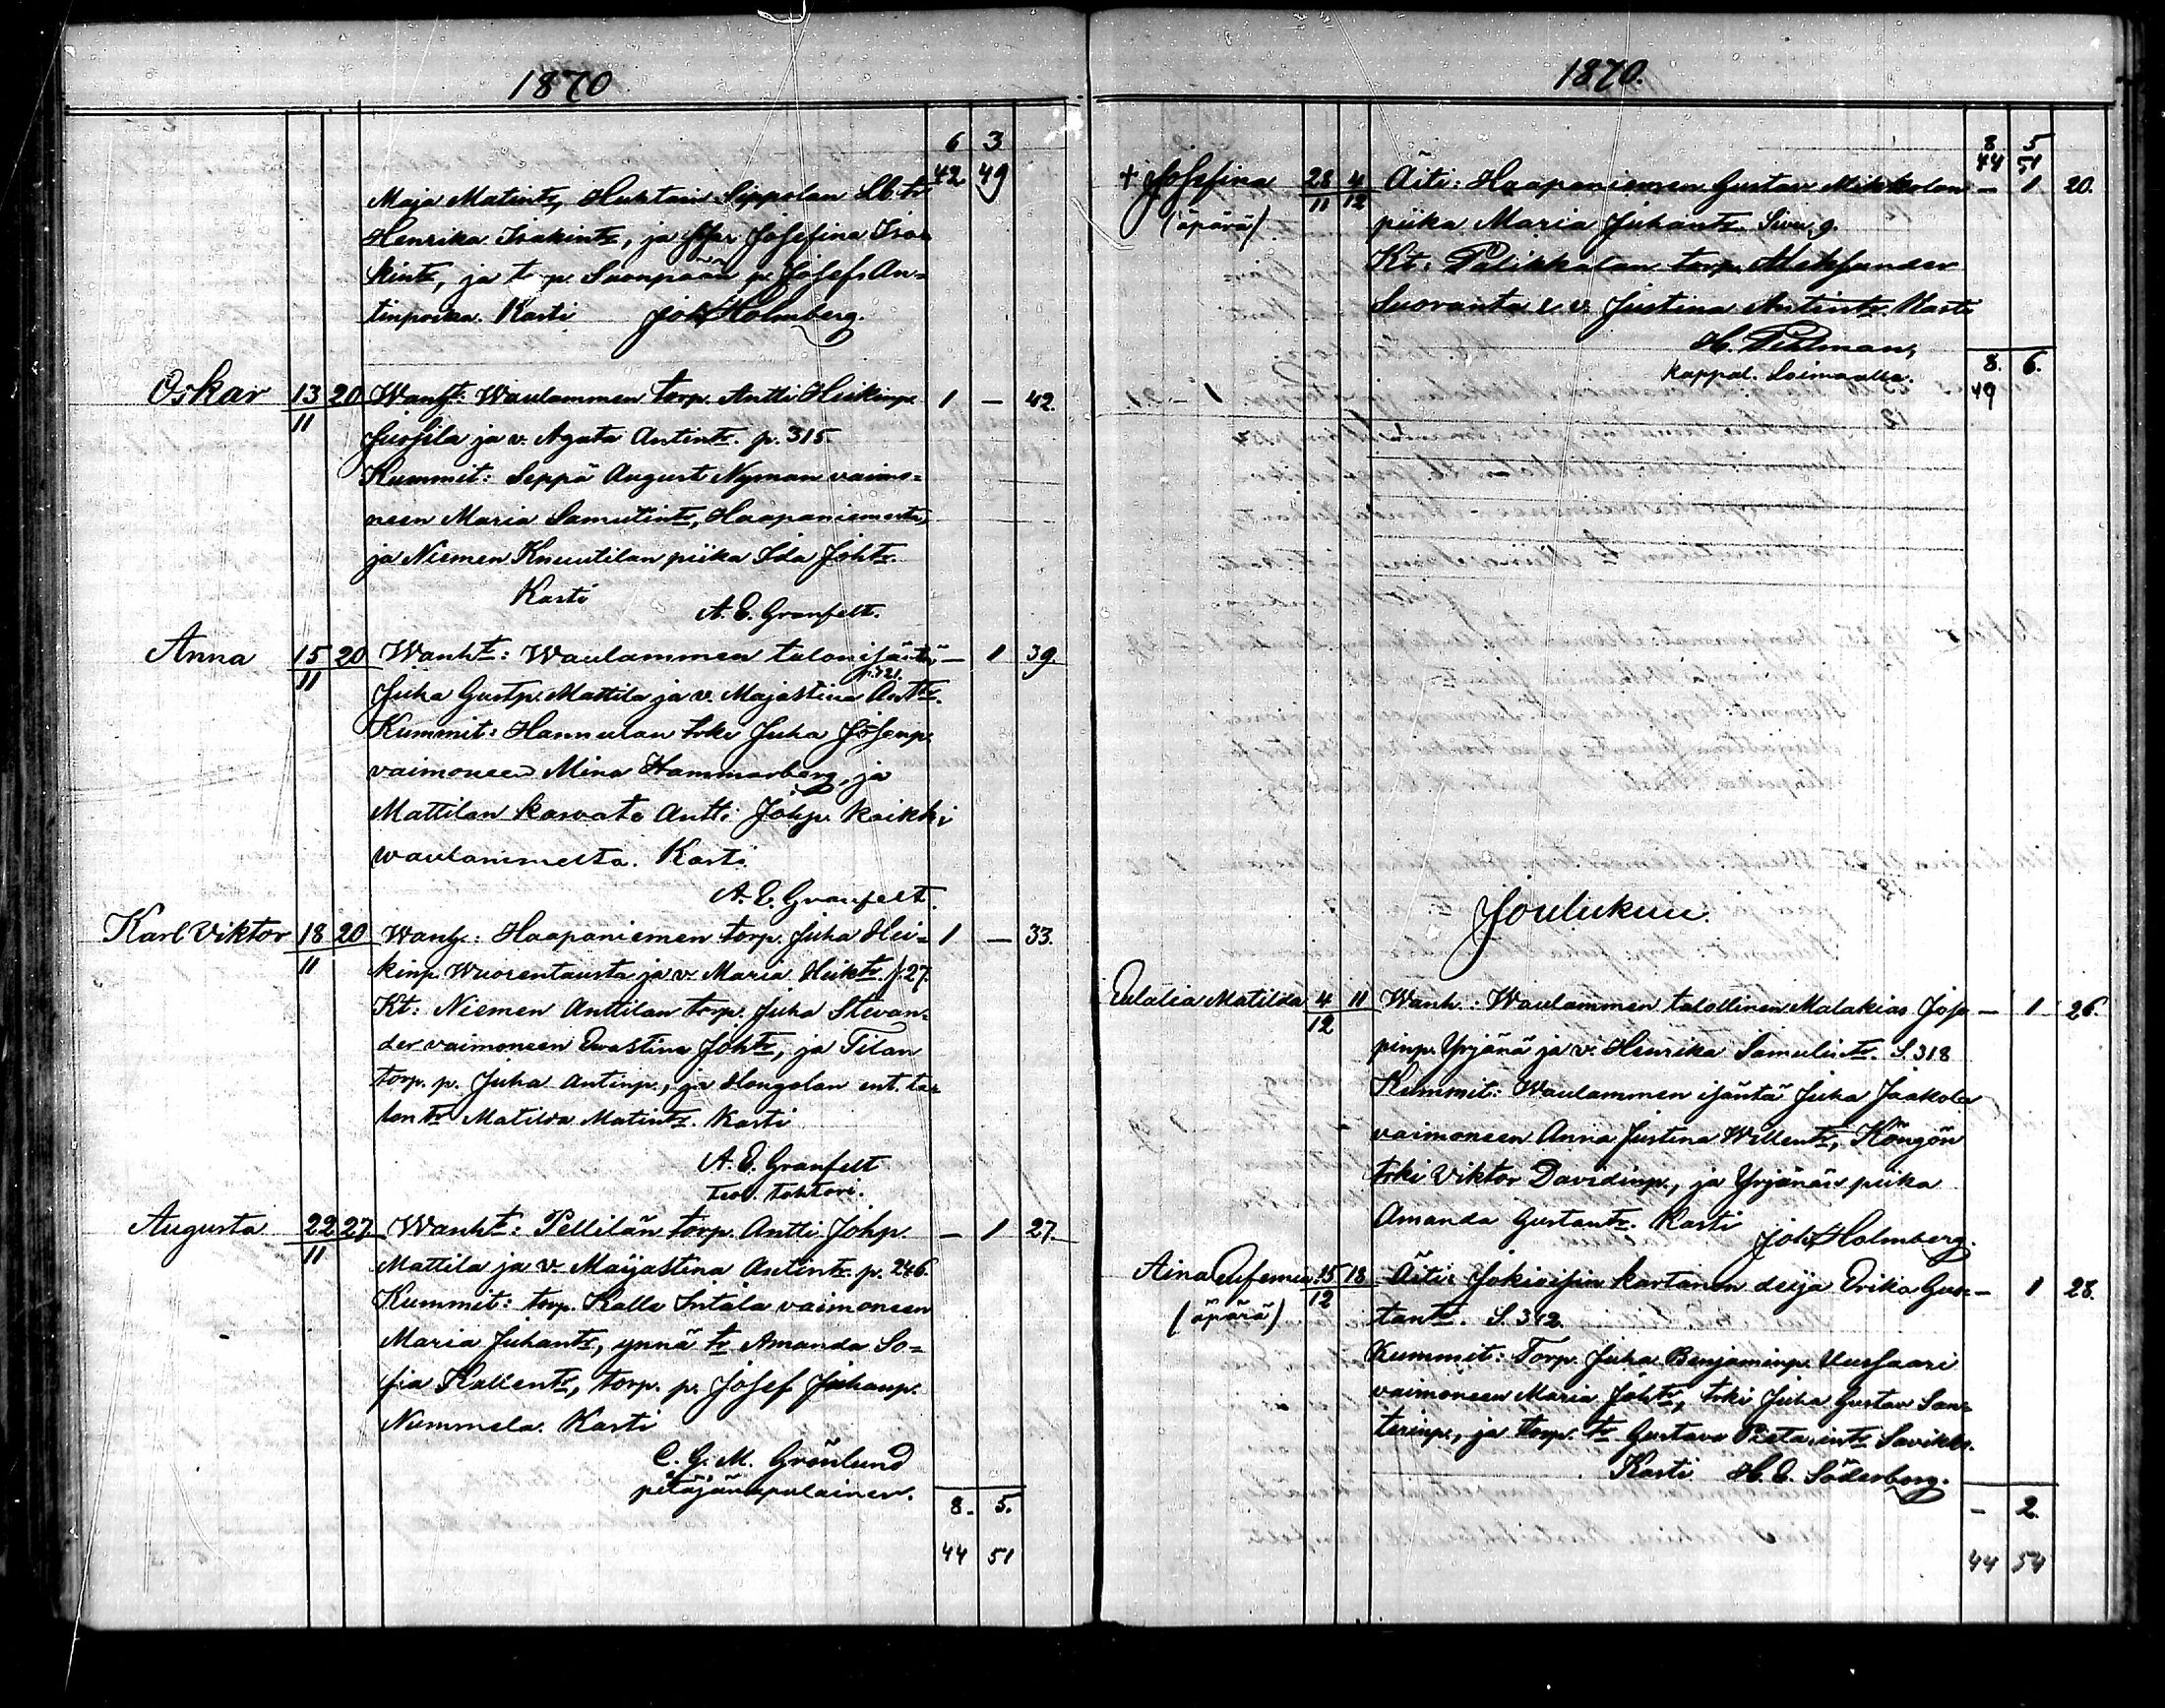 1870
6 3
42 49
Maja Matintr, Huhtain Seppolan Lb. tr
Henrika Isakintr, ja Josefina Isa-
kintr, ja t p. Suonpään p. Josef An-
tinpoika. Kasti Joh. Holmberg.
Oskar 13/11 20 Wanht: Waulammen torp. Antti Heikinp. 1 — 42.
Jussila ja v. Agata Antintr. p. 315
Kummit: Seppä August Nyman vaimo-
neen Maria Samulintr, Haapaniemestä,
ja Niemen Knuutilan piika Ida Johtr.
Kasti
A. E. Granfelt.
Anna 15/11 20 Wanht: Waulammen talon isäntä — 1 39.
p. 321.
Juha Gustp. Mattila ja v. Majastina Anttr.
Kummit: Hannulan trki Juha Josefp.
vaimoneen Mina Hammarberg, ja
Mattilan kasvati Antti Johp. kaikki
Waulammelta. Kasti
A. E. Granfelt.
Karl Viktor 18/11 20 Wanh: Haapaniemen torp. Juha Hei- 1 — 33.
kinp. Wuorentausta ja v. Maria Heiktr. p. 27.
Kt: Niemen Anttilan torp. Juha Stevan-
der vaimoneen Evastina Johtr, ja Tilan
torp. p. Juha Antinp., ja Hongolan ent. ta-
lon tr Matilda Matintr. Kasti
A. E. Granfelt
Teol. tohtori.
Augusta 22/11 27 Wanht: Pellilän torp. Antti Johp. — 1 27
Mattila ja v. Maijastina Antintr. p. 246.
Kummit: torp. Kalle Intala vaimoneen
Maria Juhantr, ynnä tr Amanda So-
fia Kallentr, torp. p. Josef Juhanp.
Nummela. Kasti
C. G. M. Grönlund
pitäjänapulainen.
8. 5.
44 51
1870.
8 5
44 51
+ Josefina 28/11 4/12 Äiti: Haapaniemen Gustav Mikkolan — 1 20.
(äpärä) piika Maria Juhantr. Sivu 9.
Kt: Palikkalan torp. Aleksander
Suovanta & v. Justina Antintr Kasti
H. Pulman,
kappal. Loimaalla.
8. 6.
49
Joulukuu.
Eulalia Matilda 4/12 11 Wanh.: Waulammen talollinen Malakias Jose- — 1 26.
pinp. Yrjänä ja v. Henrika Samulintr. S. 318
Kummit: Waulammen isäntä Juha Jaakola
vaimoneen Anna Justina Willentr, Köngön
trki Viktor Davidinp., ja Yrjänän piika
Amanda Gustantr. Kasti Joh. Holmberg.
Aina Eufemia 15/12 18 Äiti: Jokioisten kartanon deija Erika Gus- — 1 28.
(äpärä) tantr. S. 342
Kummit: Torp. Juha Benjaminp. Uussaari
vaimoneen Maria Johtr, trki Juha Gustav San-
terinp., ja torp. tr Gustava Savikko.
Kasti H. E. Söderborg.
— 2.
44 54